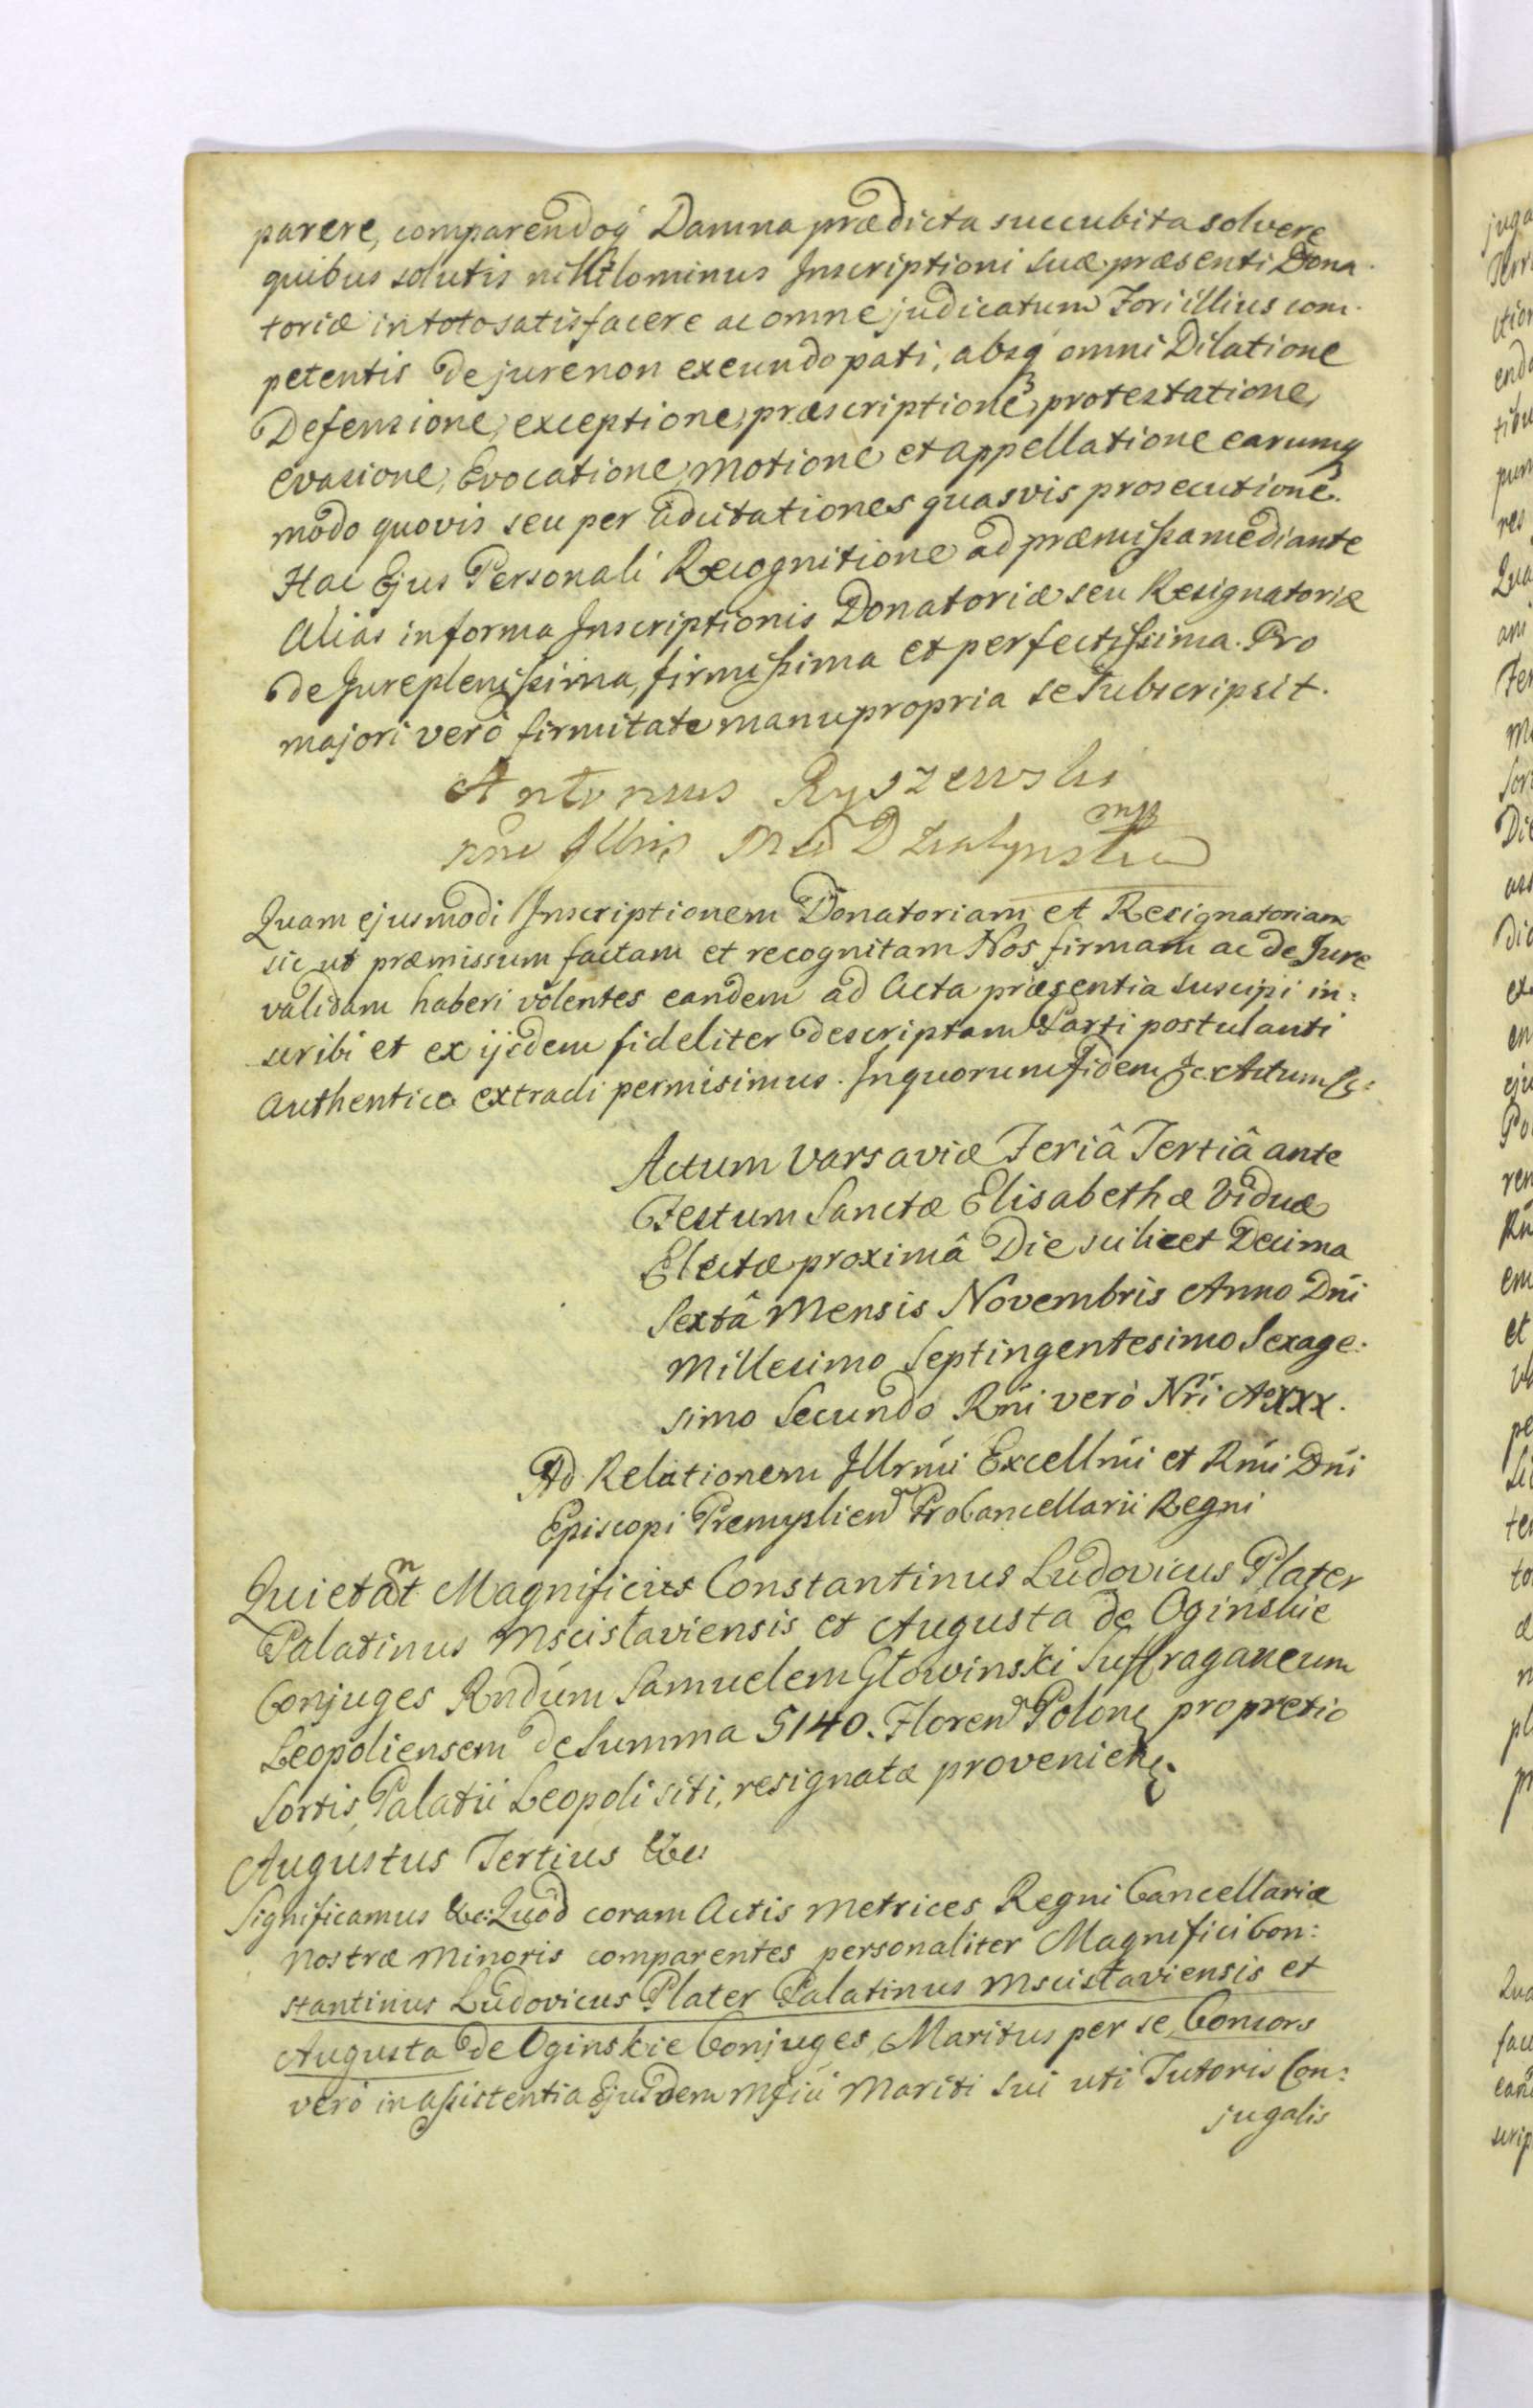 parere, comparendoq́ Damna prædicta succubita solvere
quibus solutis nihilominus Inscriptioni suæ præsenti Dona
toriæ in toto satisfacere ac omne judicatum Fori illius com
petentis de jure non exeundo pati, absq́ omni Dilatione
Defensione, exceptione, præscriptione, protestatione,
evasione, Evocatione, motione et appellatione earumq
modo quovis seu per adcitationes quasvis prosecutione.
Hac Ejus Personali Recognitione ad præmissa mediante
Alias in forma Inscriptionis Donatoriæ seu Resignatoriæ
de Jure plenissima, firmissima et perfectissima. Pro
majori verò firmitate manu propria se subscripsit.
Antonius Ryszewski
mp
Quam ejusmodi Inscriptionem Donatoriam et Resignatoriam
sic ut præmissum factam et recognitam Nos firmam ac de Jure
validam haberi volentes eandem ad Acta præsentia suscipi in:
scribi et ex ijsdem fideliter descriptam Parti postulanti
Authentice extradi permisimus. In quorum fidem &c. Actum &c:
Actum Varsaviæ Feriâ Tertiâ ante
Festum Sanctæ Elisabethæ Viduæ
Electæ proximâ Die scilicet Decima
Sextâ Mensis Novembris Anno Dńi
Millesimo Septingentesimo Sexage:
simo Secundo Rńi verò Nŕi Ao XXX.
Ad Relationem Illrḿi Excellḿi et Rḿi Dńi
Episcopi Premyslien Procancellarii Regni
Quietant Magnificus Constantinus Ludovicus Plater
Palatinus Mscislaviensis et Augusta de Oginskie
Conjuges Rndúm Samuelem Głowinski Suffraganeum
Leopoliensem de Summa 5140. Floren Polon pro pretio
Sortis Palatii Leopoli siti, resignatæ provenien
Augustus Tertius &c:
Significamus &c: Quod coram Actis Metrices Regni Cancellariæ
nostræ Minoris comparentes personaliter Magnifici Con:
stantinus Ludovicus Plater Palatinus Mscislaviensis et
Augusta de Oginskie Conjuges, Maritus per se, Consors
verò in assistentia Ejusdem Mfici Mariti sui uti Tutoris Con:
jugalis